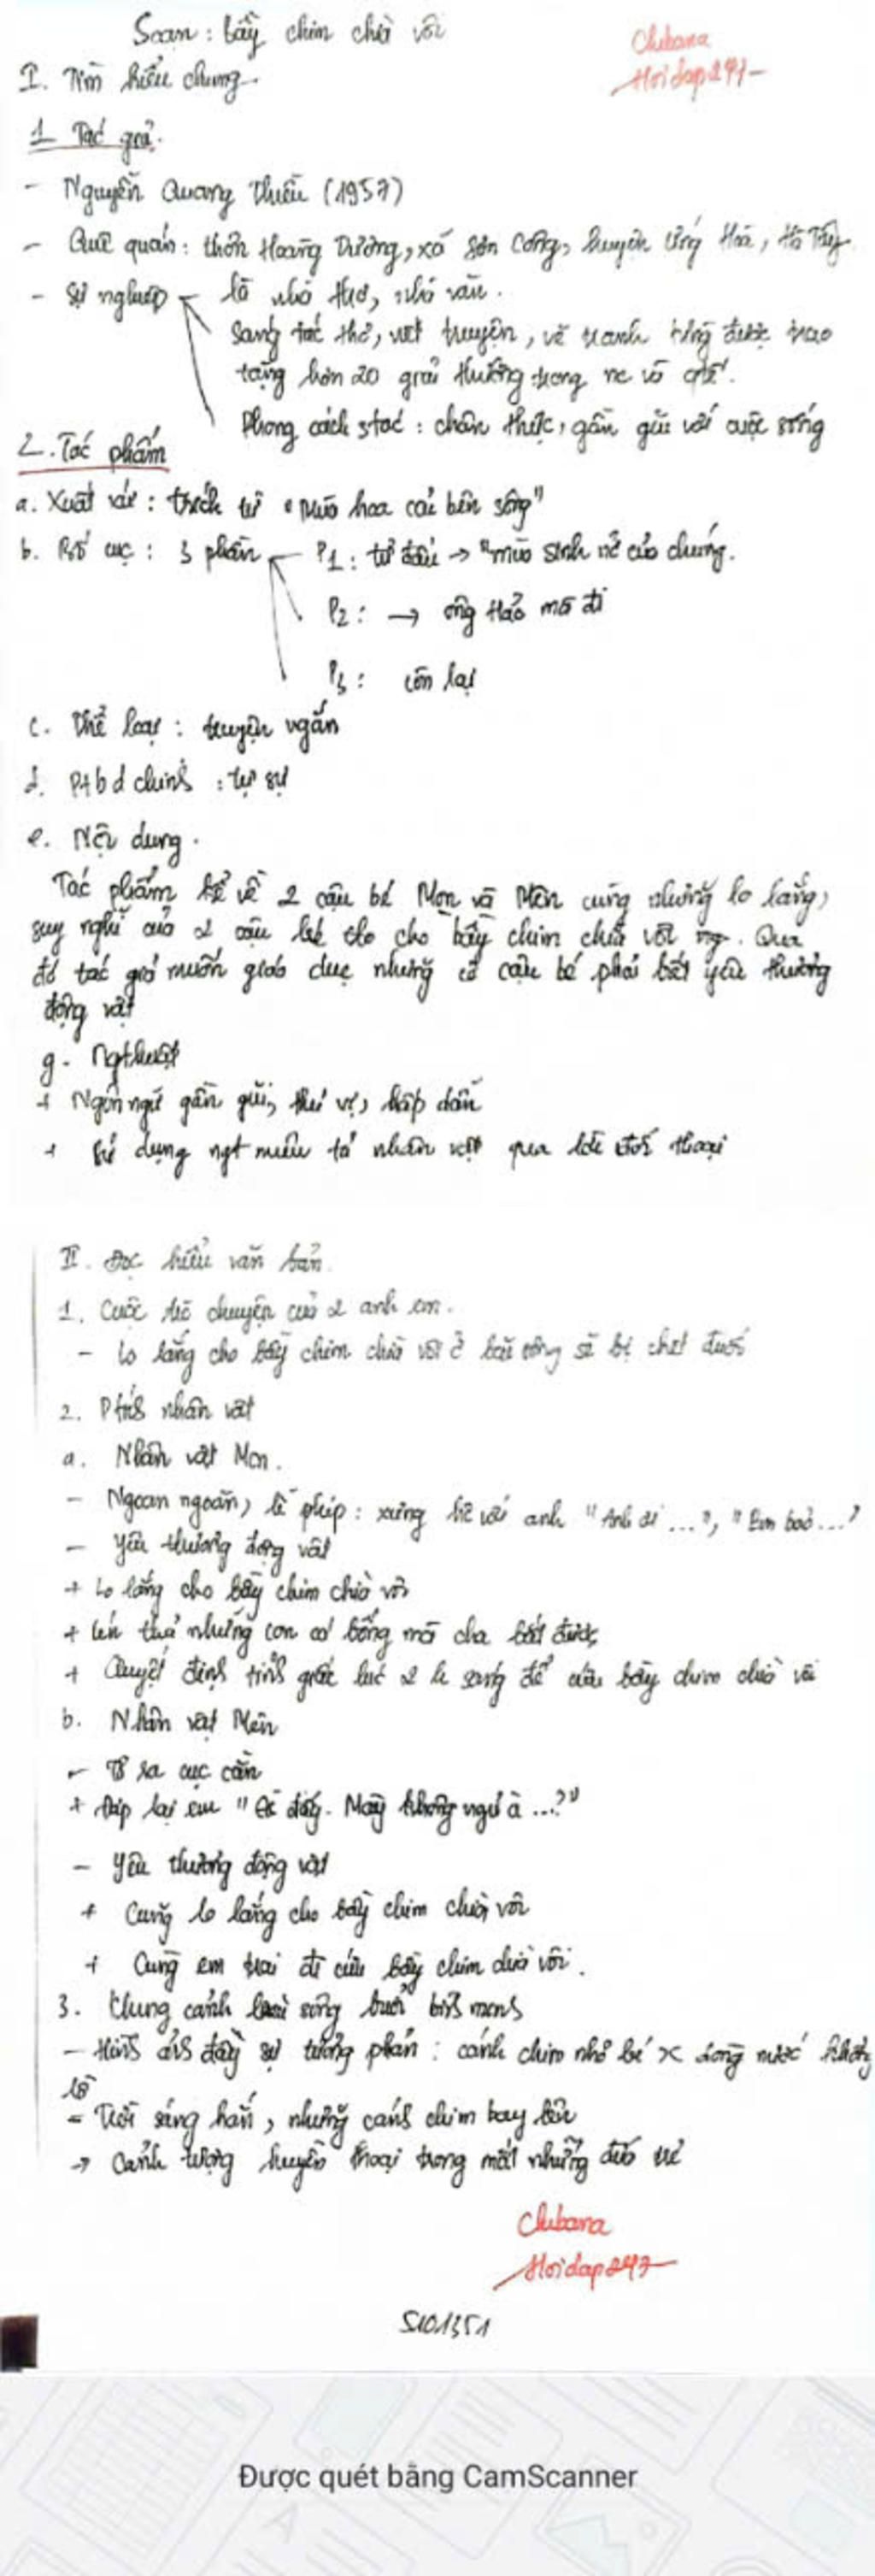 Soạn: bầy chim chìa vôi
Chubana
Hoidap247
I. Tìm hiểu chung
1. Tác giả.
- Nguyễn Quang Thiều (1957)
- Quê quán: thôn Hoàng Dương, xã Sơn Công, huyện Ứng Hòa, Hà Tây
- Sự nghiệp là nhà thơ, nhà văn.
Sáng tác thơ, viết truyện, vẽ tranh từng được trao
tặng hơn 20 giải thưởng trong nc và qtế.
Phong cách stác: chân thực, gần gũi với cuộc sống
2. Tác phẩm
a. Xuất xứ: trích từ "Mùa hoa cải bên sông"
b. Bố cục: 3 phần P1: từ đầu → "mùa sinh nở của chúng.
P2: → ông Hảo mà đi
P3: còn lại
c. Thể loại: truyện ngắn
d. Ptbd chính: tự sự
e. Nội dung.
Tác phẩm kể về 2 cậu bé Mon và Mên cùng những lo lắng,
suy nghĩ của 2 cậu bé cho bầy chim chìa vôi. Qua
đó tác giả muốn giáo dục những cô cậu bé phải biết yêu thương
động vật
g. Ngthuật
+ Ngôn ngữ gần gũi, thú vị, hấp dẫn
+ Sử dụng ngt miêu tả nhân vật qua lời đối thoại
II. Đọc hiểu văn bản.
1. Cuộc trò chuyện của 2 anh em.
- Lo lắng cho bầy chim chìa vôi ở bãi sông sẽ bị chết đuối
2. Ptích nhân vật
a. Nhân vật Mon.
- Ngoan ngoãn, lễ phép: xưng hô với anh "Anh ơi ...", "Em bảo ..."
- Yêu thương động vật
+ Lo lắng cho bầy chim chìa vôi
+ Lén thả những con cá bống mà cha bắt được
+ Quyết định tỉnh giấc lúc 2 h sáng để cứu bầy chim chìa vôi
b. Nhân vật Mên
- Tỏ ra cục cằn
+ Đáp lại em "Gì đấy. Mày không ngủ à ...?"
- Yêu thương động vật
+ Cũng lo lắng cho bầy chim chìa vôi
+ Cùng em trai đi cứu bầy chim chìa vôi.
3. Khung cảnh bãi sông buổi bình minh
- Hình ảnh đầy sự tương phản: cánh chim nhỏ bé x dòng nước khổng
lồ
- Trời sáng hẳn, những cánh chim bay lên
→ Cảnh tượng huyền thoại trong mắt những đứa trẻ
Chubana
Hoidap247
5101351
Được quét bằng CamScanner